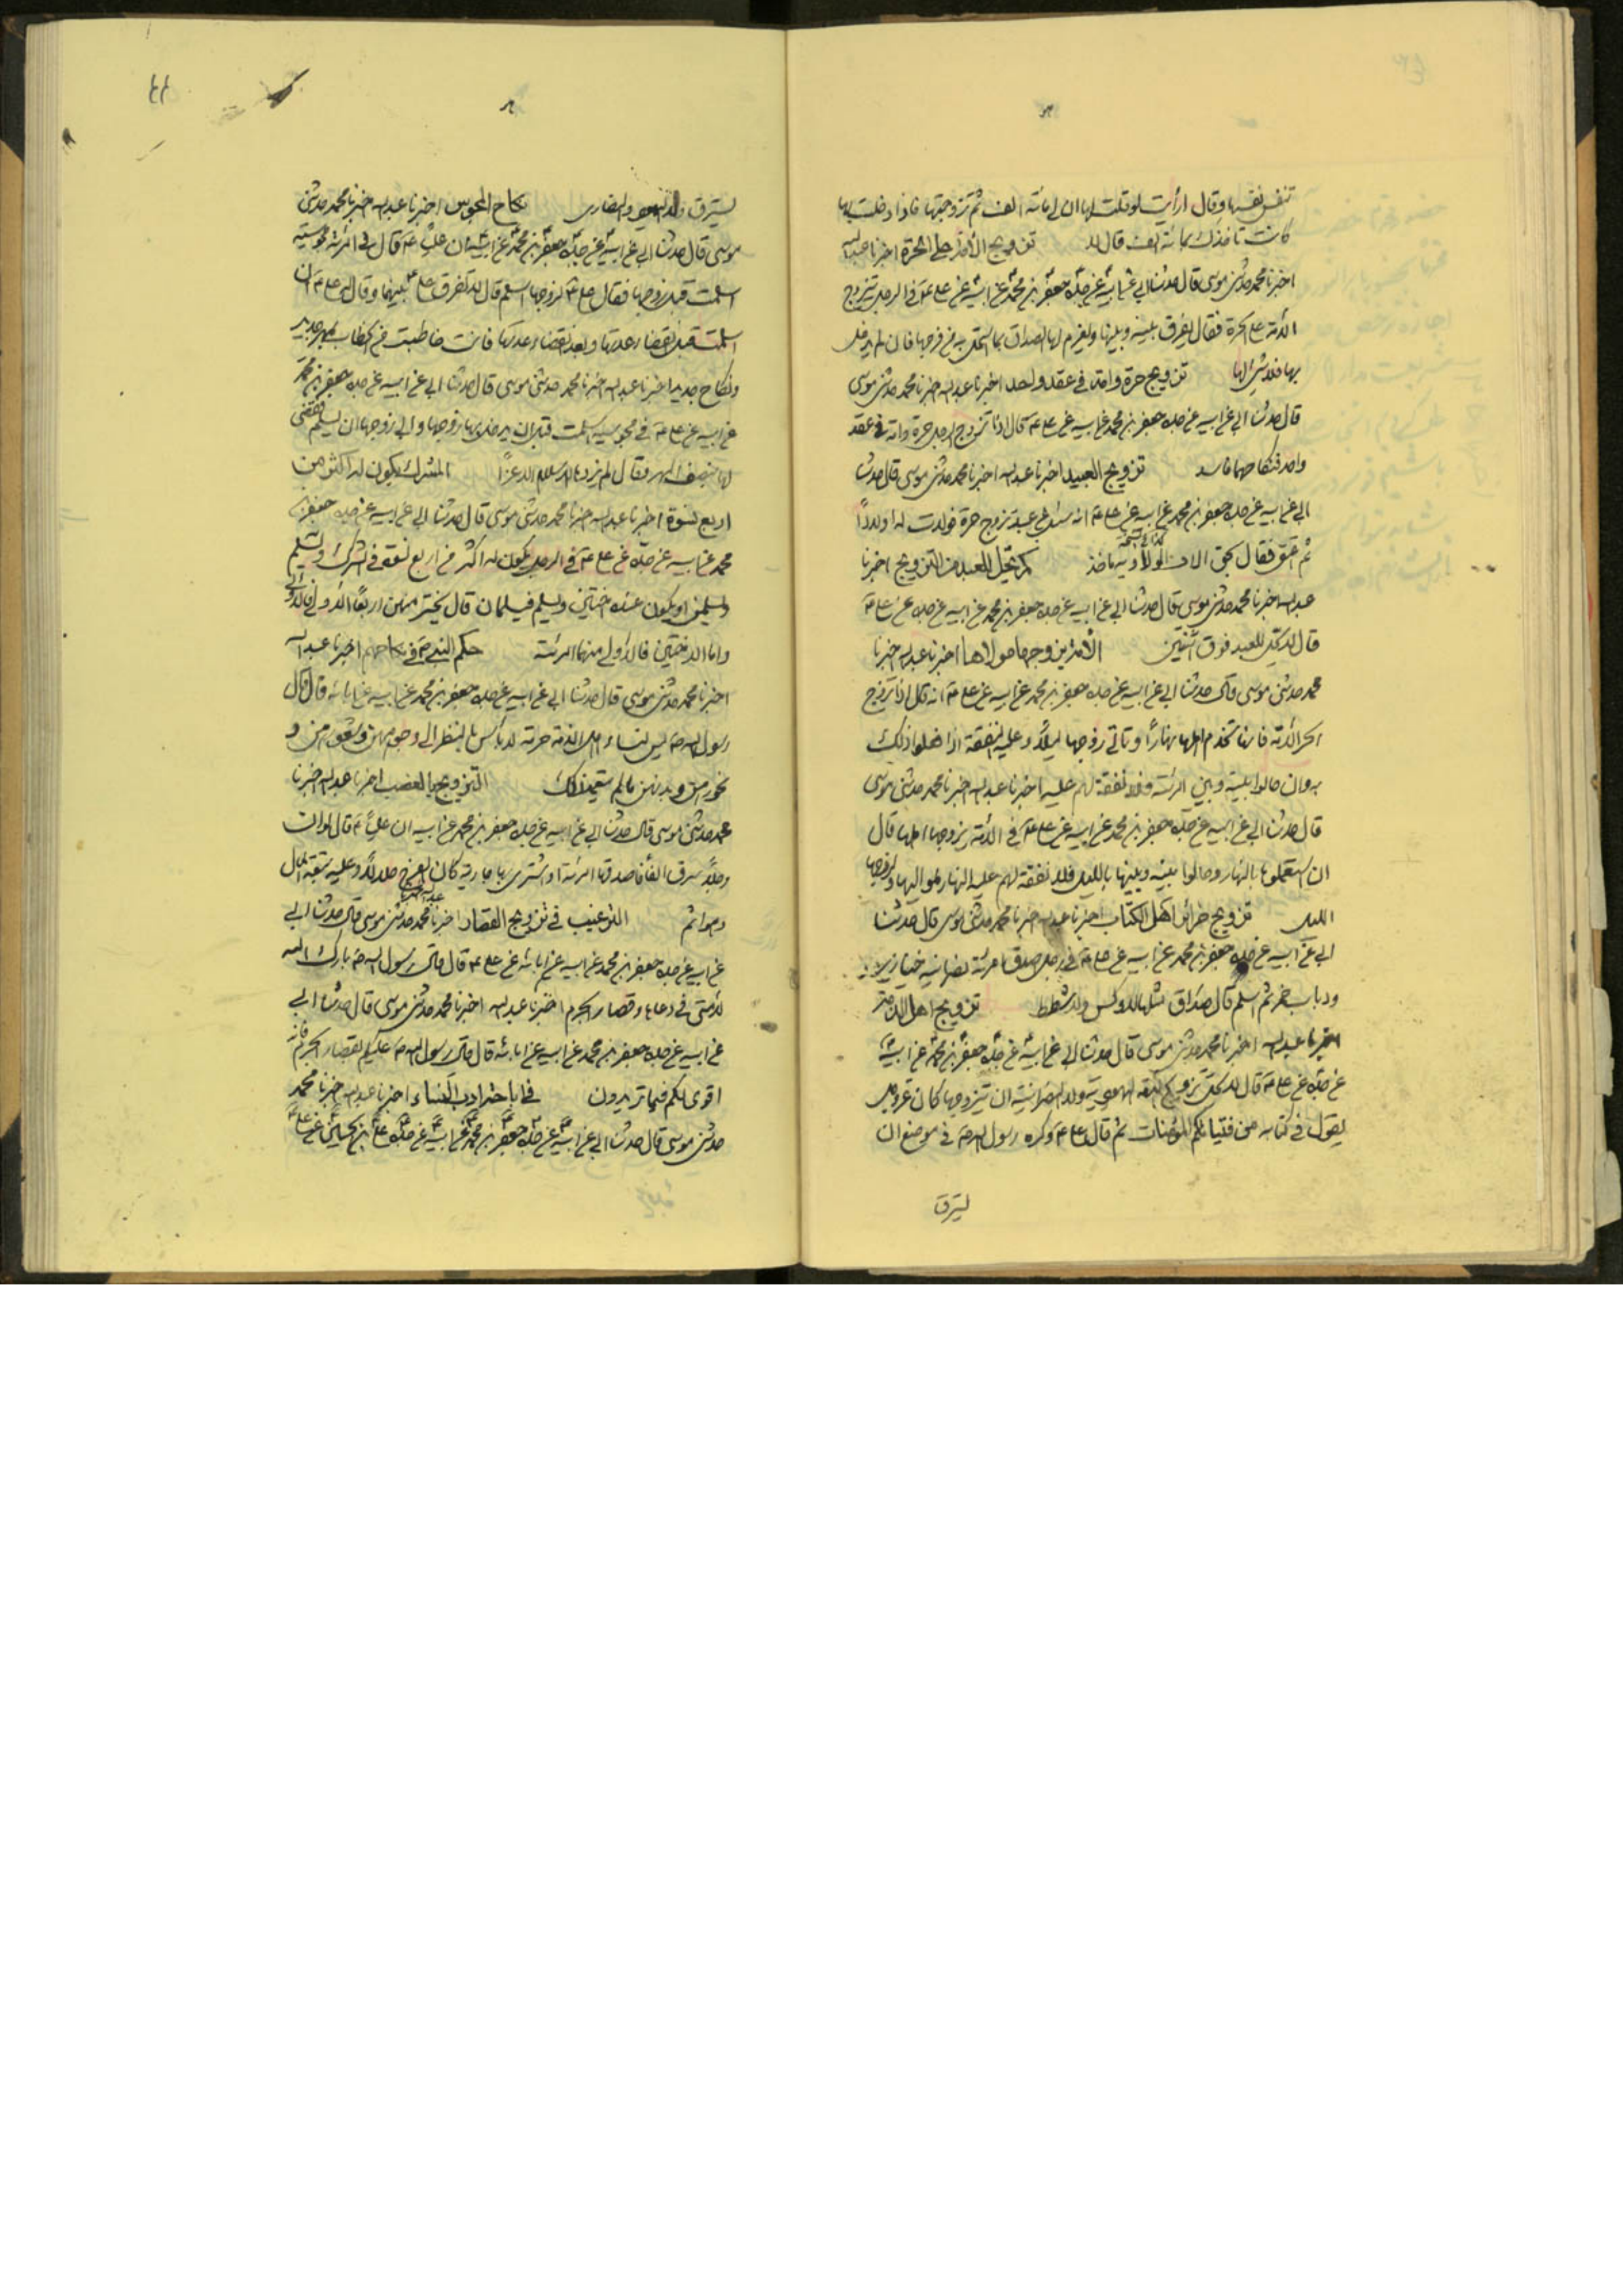 تنفس نفسها وقال ارأيت لو قلت لها ان لي مائة الف ثم تزوجتها فاذا دخلت بها
كانت تاخذك بمائة الف قال لا تزويج الأمة على الحرة اخبرنا عبدالله
اخبرنا محمد حدثني موسى قال حدثنا ابي عن ابيه عن جده جعفر بن محمد عن ابيه عن علي ع في الرجل يتزوج
الأمة على الحرة فقال يفرق بينه وبينها ويغرم لها الصداق بما استحل من فرجها فان لم يدخل
بها فلا شئ لها تزويج حرة وامة في عقد واحد اخبرنا عبدالله اخبرنا محمد حدثني موسى
قال حدثنا ابي عن ابيه عن جده جعفر بن محمد عن ابيه عن علي ع قال اذا تزوج الرجل حرة وامة في عقد
واحد فنكاحهما فاسد تزويج العبيد اخبرنا عبدالله اخبرنا محمد حدثني موسى قال حدثنا
ابي عن ابيه عن جده جعفر بن محمد عن ابيه عن علي ع انه سئل عن عبد تزوج حرة فولدت له اولادا
ثم اعتق فقال
كم يحل للعبد من التزويج اخبرنا
عبدالله اخبرنا محمد حدثني موسى قال حدثنا ابي عن ابيه عن جده جعفر بن محمد عن ابيه عن جده عن علي ع
قال لا يحل للعبد فوق اثنتين الأمة يزوجها مولاها اخبرنا عبدالله اخبرنا
محمد حدثني موسى قال حدثنا ابي عن ابيه عن جده جعفر بن محمد عن ابيه عن علي ع انه قال اذا تزوج
الحر الأمة فانها تخدم اهلها نهارًا وتاتي زوجها ليلًا وعليه النفقة اذا فعلوا ذلك
به وان حالوا بينه وبين امرئته فلا نفقة لهم عليه اخبرنا عبدالله اخبرنا محمد حدثني موسى
قال حدثنا ابي عن ابيه عن جده جعفر بن محمد عن ابيه عن علي ع في الأمة يزوجها اهلها قال
ان استعملوها بالنهار وحالوا بينه وبينها بالليل فلا نفقة لهم عليه النهار لمواليها ولزوجها
الليل تزويج حرائر اهل الكتاب اخبرنا عبدالله اخبرنا محمد حدثني موسى قال حدثنا
ابي عن ابيه عن جده جعفر بن محمد عن ابيه عن علي ع في رجل اصدق امرئة نصرانية خنازير
ودباب خمر ثم اسلم قال صداق مثلها لا وكس ولا شطط تزويج اهل الذمة
اخبرنا عبدالله اخبرنا محمد حدثني موسى قال حدثنا ابي عن ابيه عن جده جعفر بن محمد عن ابيه
عن جده عن علي ع قال لا يحل تزويج اليهودية ولا النصرانية ان تتزوجها كان عز وجل
يقول في كتابه من فتياتكم المؤمنات ثم قال علي ع وكره رسول الله ص في موضع ان
يسترق
يسترق ولد اليهود والنصارى نكاح المجوس اخبرنا عبدالله اخبرنا محمد حدثني
موسى قال حدثنا ابي عن ابيه عن جده جعفر بن محمد عن ابيه ان عليا ع قال في امرئة مجوسية
اسلمت قبل زوجها فقال علي ع لزوجها اسلم قال لا ففرق علي ع بينهما وقال علي ع ان
اسلمت قبل انقضاء عدتها وبعد انقضاء عدتها فانت خاطب من الخطاب بمهر جديد
ونكاح جديد اخبرنا عبدالله اخبرنا محمد حدثني موسى قال حدثنا ابي عن ابيه عن جده جعفر بن محمد
عن ابيه عن علي ع في مجوسية اسلمت قبل ان يدخل بها زوجها وابى زوجها ان يسلم فقضى
لها بنصف المهر وقال لم يزدها الاسلام الا عزًا المشرك يكون له اكثر من
اربع نسوة اخبرنا عبدالله اخبرنا محمد حدثني موسى قال حدثنا ابي عن ابيه عن جده جعفر بن
محمد عن ابيه عن جده عن علي ع في الرجل يكون له اكثر من اربع نسوة في الشرك ويسلم
ويسلمن او يكون عنده اختين ويسلم فيسلمان قال يختر منهن اربعًا الاولى فالاولى
واما الاختين فالاولى منهما امرئته حكم النبي ص في نكاحهم اخبرنا عبدالله
اخبرنا محمد حدثني موسى قال حدثنا ابي عن ابيه عن جده جعفر بن محمد عن ابيه عن ابائه قال قال
رسول الله ص ليس لنساء اهل الذمة حرمة لا بأس بالنظر الى وجوههن وشعورهن و
نحورهن وبدنهن ما لم يتعمد ذلك التزويج بالغصب اخبرنا عبدالله اخبرنا
محمد حدثني موسى قال حدثنا ابي عن ابيه عن جده جعفر بن محمد عن ابيه ان عليًا ع قال لو ان
رجلًا سرق الفًا فاصدقها امرئة او اشترى بها جارية كان الفرج حلالًا وعليه تبعة المال
وهو اثم الترغيب في تزويج القصار اخبرنا محمد حدثني موسى قال حدثنا ابي
عن ابيه عن جده جعفر بن محمد عن ابيه عن ابائه عن علي ع قال قال رسول الله ص بارك الله
لامتي في دعاء وقصار الجرم اخبرنا عبدالله اخبرنا محمد حدثني موسى قال حدثنا ابي
عن ابيه عن جده جعفر بن محمد عن ابيه عن ابائه قال قال رسول الله ص عليكم بقصار الجرم فانه
اقوى لكم فيما تريدون في اباحة ادب النساء اخبرنا عبدالله اخبرنا محمد
حدثني موسى قال حدثنا ابي عن ابيه عن جده جعفر بن محمد عن ابيه عن جده علي بن الحسين عن علي ع